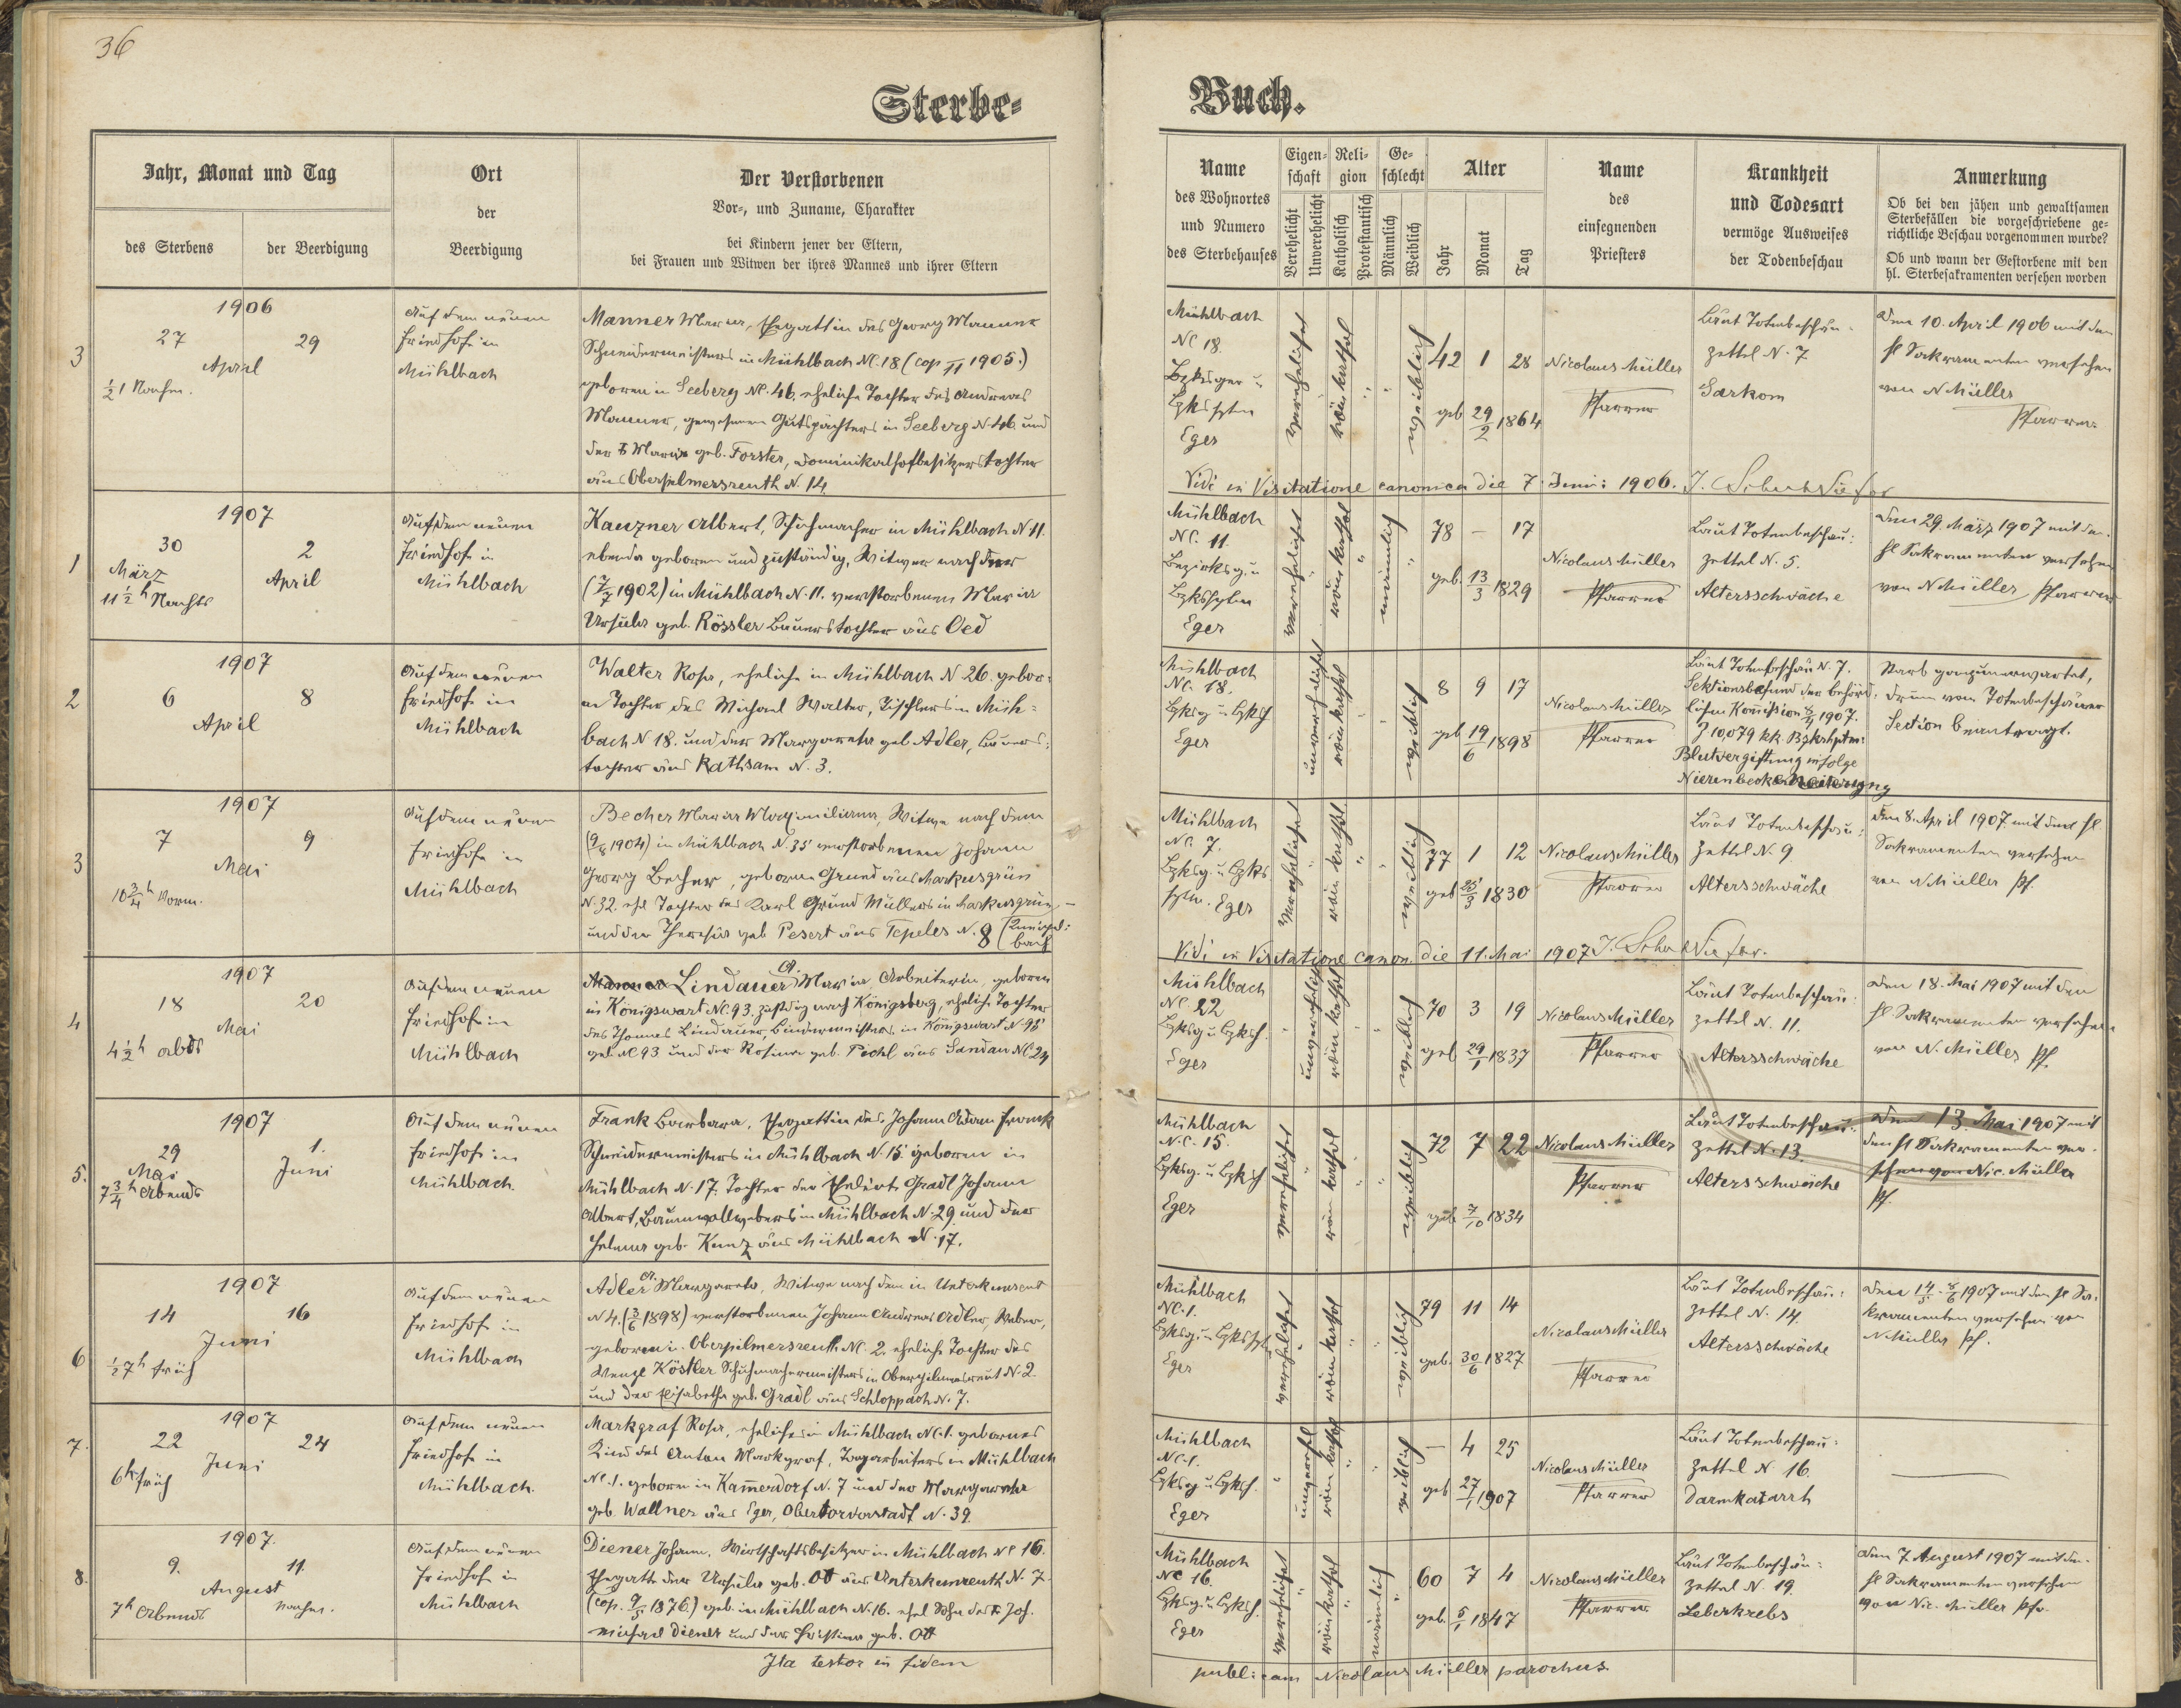 36
Sterbe-
Buch.
Jahr, Monat und Tag
des Sterbens
der Beerdigung
Ort
der
Beerdigung
Der Verstorbenen
Vor-, und Zuname, Charakter
bei Kindern jener der Eltern,
bei Frauen und Witwen der ihres Mannes und ihrer Eltern
Name
des Wohnortes
und Numero
des Sterbehauses
Eigen-
schaft
Verehelicht
Unverehelicht
Reli-
gion
Katholisch
Protestantisch
Ge-
schlecht
Männlich
Weiblich
Alter
Jahr
Monat
Tag
Name
des
einsegnenden
Priesters
Krankheit
und Todesart
vermöge Ausweises
der Todenbeschau
Anmerkung
Ob bei den jähen und gewaltsamen
Sterbefällen die vorgeschriebene ge-
richtliche Beschau vorgenommen wurde?
Ob und wann der Gestorbene mit den
hl. Sterbesakramenten versehen worden
3
1906
27 29
April
½1 Nachm.
Auf dem neuen
Friedhofe in
Mühlbach
Manner Maria, Ehegattin des Georg Manner
Schneidermeisters in Mühlbach NC. 18 (cop 1905.)
geboren in Seeberg NC. 46, eheliche Tochter des Andreas
Manner, gewesenen Gutspächters in Seeberg N. 46 und
der Maria geb. Forster, Dominikalhofbesitzerstochter
aus Oberpilmersreuth N. 14
Mühlbach
NC 18.
Eger
verehelichet
röm kathol
weiblich
42 1 28
geb 29/2 1864
Nicolaus Müller
Pfarrer
Laut Totenbeschau-
zettel N. 7
Sarkom
Den 10. April 1906 mit den
hl Sakramenten versehen
von N Müller
Pfarrer
Vidi in Visitatione canonica die 7. Juni 1906.
1
1907
30 2
März April
11 ½ h Nachts
Auf dem neuen
Friedhofe in
Mühlbach
Kauzner Albert, Schuhmacher in Mühlbach N 11.
ebenda geboren und zuständig, Witwer nach der
(7/7 1902) in Mühlbach N. 11. verstorbenen Maria
Ursula geb. Rössler Bauerstochter aus Oed
Mühlbach
NC. 11.
Eger
verehelichet
röm kathol
männlich
78 - 17
geb. 13/3 1829
Nicolaus Müller
Pfarrer
Laut Totenbeschau-
zettel N. 5.
Altersschwäche
Den 29. März 1907 mit den
hl Sakramenten versehen
von N Müller Pfarrer
2
1907
6 8
April
Auf dem neuen
Friedhofe in
Mühlbach
Walter Rosa, eheliche in Mühlbach N 26. gebor-
ne Tochter des Michael Walter, Tischlers in Mühl-
bach N 18. und der Margareta geb Adler, Bauers-
tochter aus Rathsam N. 3.
Mühlbach
NC. 18.
Eger
unverehelichet
röm kathol
weiblich
8 9 17
geb 19/6 1898
Nicolaus Müller
Pfarrer
Laut Totenbeschau N. 7.
Sektionsbefund der behörd-
lichen Kommission 1907.
Z 10,079 kk
Blutvergiftung infolge
Starb ganz unerwartet,
drum vom Totenbeschauer
Section beantragt.
3
1907
7 9
Mai
10 ¾ h Vorm.
Auf dem neuen
Friedhofe in
Mühlbach
Becher Maria Maximiliana, Witwe nach dem
in Mühlbach N. 35 verstorbenen Johann
Georg Becher, geborne Grund aus Markusgrün
N. 32. ehel Tochter des Karl Grund Müllers in Markusgrün
und der Theresia geb Pesert aus Tepeles N. 8
Mühlbach
NC. 7.
Eger
verehelichet
röm kathol
weiblich
77 1 12
geb 25/3 1830
Nicolaus Müller
Pfarrer
Laut Totenbeschau-
Zettel N. 9
Altersschwäche
Den 8. April 1907 mit den hl
Sakramenten versehen
von N Müller Pf.
Vidi in Visitatione canon. die 11. Mai 1907
4
1907
18 20
Mai
4 ½ h abds
Auf dem neuen
Friedhofe in
Mühlbach
Lindauer A. Maria, Arbeiterin, geboren
in Königswart NC. 93. zustdig nach Königsberg, eheliche Tochter
des Thomas Lindauer, Bindermeisters, in Königswart N. 98
geb NC 93 und der Rosina geb. Pöchl aus Sandau NC 24
Mühlbach
NC. 22
Eger
unverehelicht
röm kathol
weiblich
70 3 19
geb 29/1 1837
Nicolaus Müller
Pfarrer
Laut Totenbeschau-
zettel N. 11.
Altersschwäche
Den 18. Mai 1907 mit den
hl. Sakramenten versehen
von N. Müller Pf.
5.
1907
29 1.
Mai Juni
7 ¾ h Abends
Auf dem neuen
Friedhofe in
Mühlbach.
Frank Barbara, Ehegattin des Johann Adam Frank
Schneidermeisters in Mühlbach N. 15 geboren in
Mühlbach N. 17. Tochter der Gradl Johann
Albert, Baumwollwebers in Mühlbach N. 29 und der
Helena geb. Kunz aus Mühlbach N. 17.
Mühlbach
N.C. 15.
Eger
verehelichet
röm kathol
weiblich
72 7 22
geb 7/10 1834
Nicolaus Müller
Pfarrer
Laut Totenbeschau-
Zettel N. 13.
Altersschwäche
Den 13. Mai 1907 mit
den hl Sakramenten ver-
sehen von Nic. Müller
Pf
6
1907
14 16
Juni
½7 h früh
Auf dem neuen
Friedhofe in
Mühlbach
Adler A. Margareta, Witwe nach dem in Unterkunreut
N 4. (3/6 1898) verstorbenen Johann Andreas Adler, Weber,
geboren in Oberpilmersreuth NC. 2. eheliche Tochter des
Wenzl Köstler Schuhmachermeisters in Oberpilmersreut N. 2
und der Elisabetha geb. Gradl aus Schloppach N. 7.
Mühlbach
NC. 1.
Eger
verehelichet
röm kathol
weiblich
79 11 14
geb. 30/6 1827
Nicolaus Müller
Pfarrer
Laut Totenbeschau-
zettel N. 14.
Altersschwäche
1907 mit den hl Sa-
kramenten versehen von
N Müller Pf.
7.
1907
22 24
Juni
6 h früh
Auf dem neuen
Friedhofe in
Mühlbach.
Markgraf Rosa, eheliches in Mühlbach NC. 1. gebornes
Kind des Anton Markgraf, Tagarbeiters in Mühlbach
NC. 1. geboren in Kamerdorf N. 7 und der Margareta
geb. Wallner aus Eger, Obertorvorstadt N. 39.
Mühlbach
NC. 1.
Eger
röm kathol
weiblich
- 4 25
geb 27/1 1907
Nicolaus Müller
Pfarrer
Laut Totenbeschau-
Zettel N 16.
Darmkatarrh
8.
1907.
9. 11.
August
7 h Abends Nachm.
Auf dem neuen
Friedhofe in
Mühlbach
Diener Johann, Wirtschaftsbesitzer in Mühlbach NC 16.
Ehegatte der Ursula geb. Ott aus Unterkunreuth N. 7
(cop. 9/5 1876.) geb. in Mühlbach N. 16. ehel Sohn des Jos.
Michael Diener und der Christina geb. Ott
Mühlbach
NC 16.
Eger
verehelichet
röm kathol
männlich
60 7 4
geb. 5/1 1847
Nicolaus Müller
Pfarrer
Laut Totenbeschau-
zettel N 19.
Leberkrebs
Den 7 August 1907 mit den
hl Sakramenten versehen
von Nic. Müller Pfr.
Ita testor in fidem
publicam Nicolaus Müller parochus.